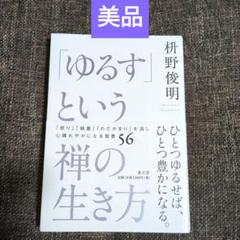 美品
枡野俊明
「ゆるす」という
禅の生き方
「怒り」「執着」「わだかまり」を流し
心穏やかになる智慧56
ひとつゆるせば、
ひとつ豊かになる。